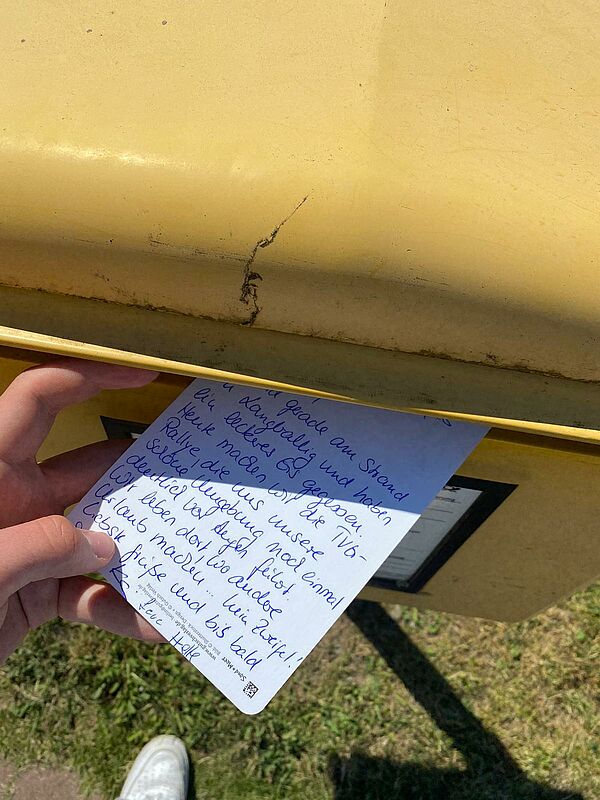 gerade am Strand
Langballig und haben
ein leckeres Eis gegessen.
Heute machen wir die TVG-
Rallye die uns unsere
schöne Umgebung noch einmal
deutlich vor Augen führt.
Wir leben dort wo andere
Urlaub machen... kein Zweifel!
Liebste
Grüße und bis bald
Eure Helle
Sand + Meer